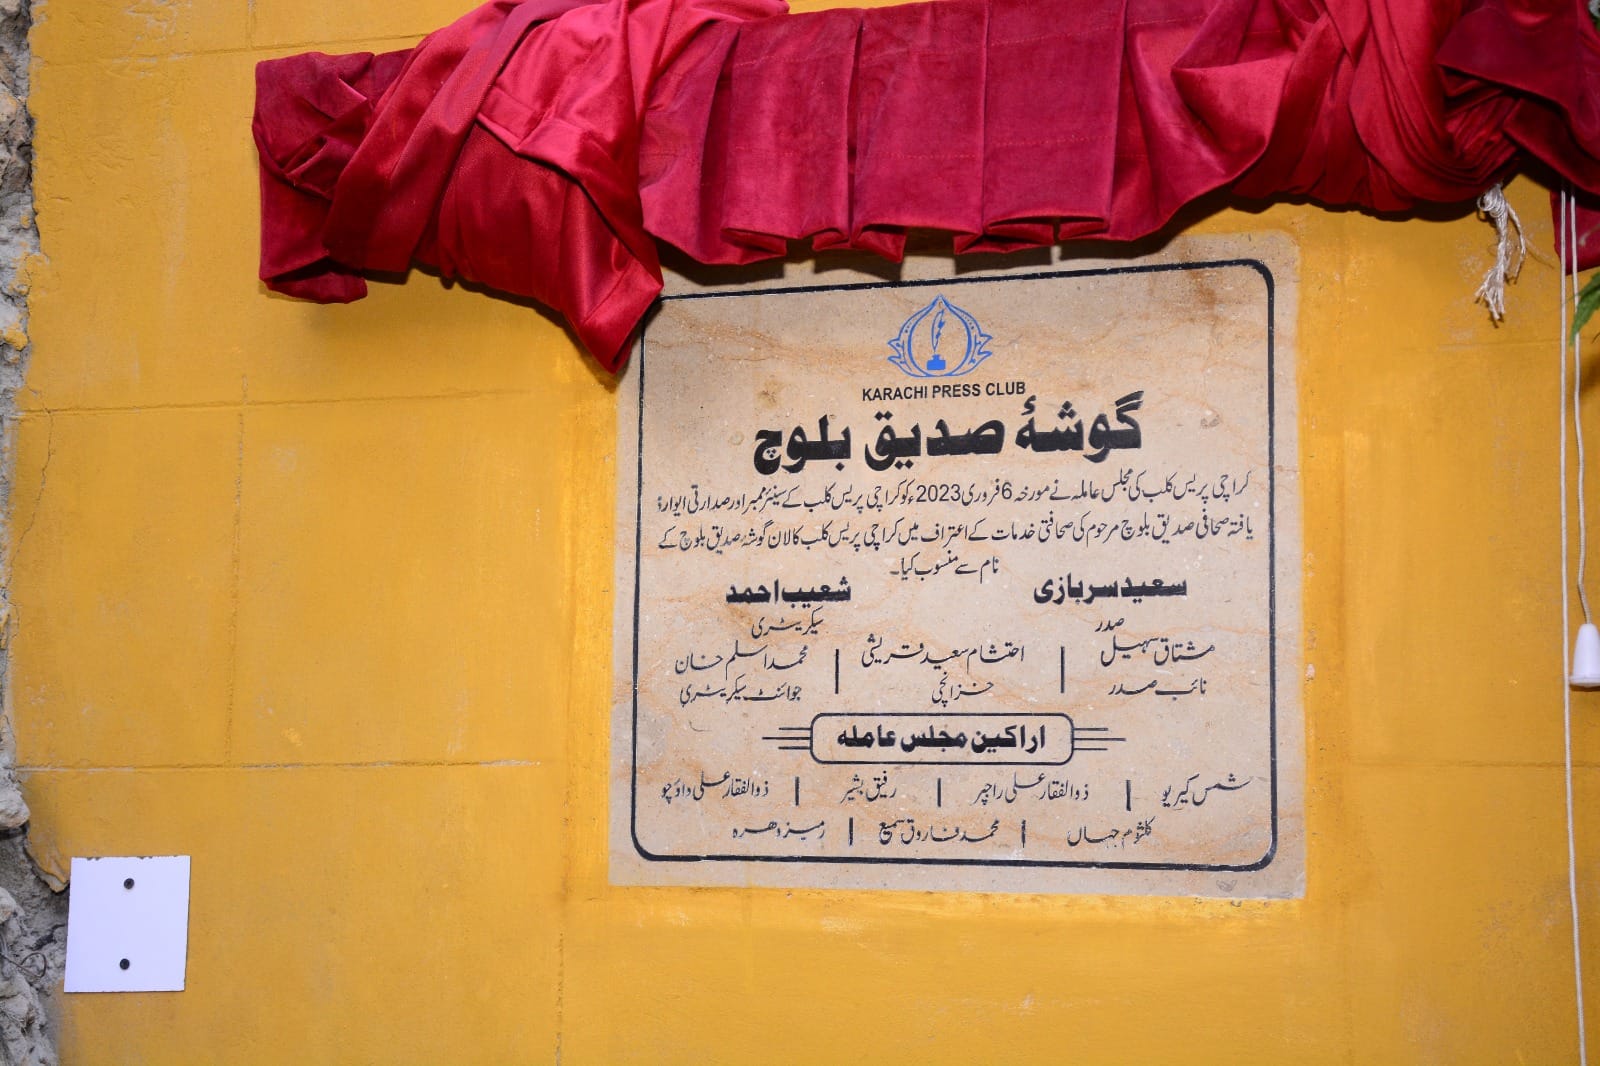 KARACHI PRESS CLUB
گوشۂ صدیق بلوچ
کراچی پریس کلب کی مجلس عاملہ نے مورخہ 6 فروری 2023ء کو کراچی پریس کلب کے سینئر ممبر اور صدارتی ایوارڈ
یافتہ صحافی صدیق بلوچ مرحوم کی صحافتی خدمات کے اعتراف میں کراچی پریس کلب کا لان گوشۂ صدیق بلوچ کے
نام سے منسوب کیا۔
سعید سربازی شعیب احمد
صدر سیکریٹری
مشتاق سہیل | احتشام سعید قریشی | محمد اسلم خان
نائب صدر | خزانچی | جوائنٹ سیکریٹری
اراکین مجلس عاملہ
شمس کیریو | ذوالفقار علی راجپر | رفیق بشیر | ذوالفقار علی واؤچو
کلثوم جہاں | محمد فاروق سمیع | رمیز وھرہ